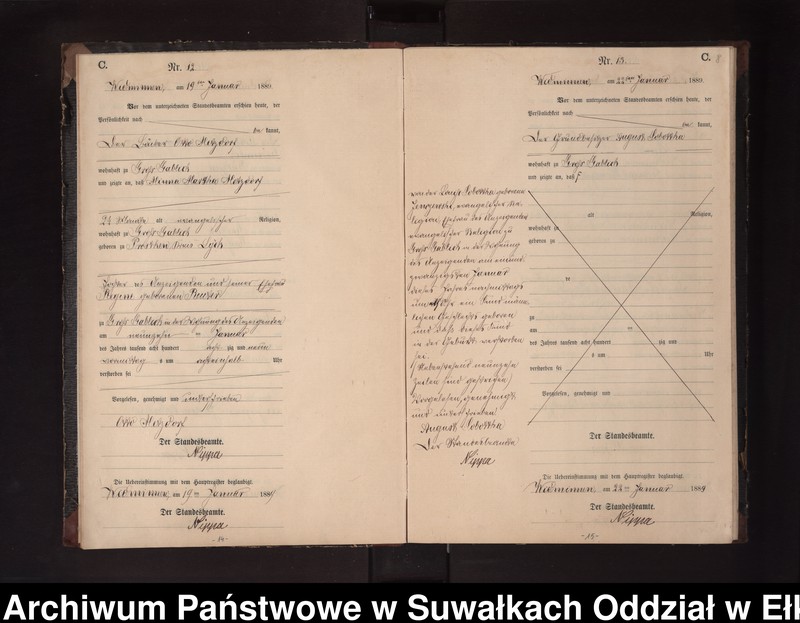 C.
Nr. 12
Widminnen, am 19ten Januar 1889
Vor dem unterzeichneten Standesbeamten erschien heute, der
Persönlichkeit nach
be kannt,
Der Otto Metzdorf
wohnhaft zu Groß Gablick
und zeigte an, daß Minna Martha Metzdorf
2½ Monate alt evangelischer Religion,
wohnhaft zu Groß Gablick
geboren zu Prostken Kreis Lyck
Tochter des Anzeigenden und seiner Ehefrau
Regine geborenen
zu Groß Gablick in der Wohnung des Anzeigenden
am neunzehn ten Januar
des Jahres tausend acht hundert acht zig und neun
Vormittag s um achteinhalb Uhr
verstorben sei
Vorgelesen, genehmigt und unterschrieben
Otto Metzdorf
Der Standesbeamte.
Nippa
Die Uebereinstimmung mit dem Hauptregister beglaubigt.
Widminnen, am 19ten Januar 1889
Der Standesbeamte.
Nippa
- 14 -
C.
Nr. 13.
Widminnen, am 22ten Januar 1889.
Vor dem unterzeichneten Standesbeamten erschien heute, der
Persönlichkeit nach
be kannt,
Der Grundbesitzer August Sobottka
wohnhaft zu Groß Gablick
und zeigte an, daß
alt Religion,
wohnhaft zu
geboren zu
zu
am ten
des Jahres tausend acht hundert zig und
s um Uhr
verstorben sei
Vorgelesen, genehmigt und
von der Sobottka geborenen
evangelischer Re-
ligion, Ehefrau des Anzeigenden
evangelischer Religion zu
Groß Gablick in der Wohnung
des Anzeigenden am ein und
zwanzigsten Januar
dieses Jahres nachmittags
um Uhr ein Kind männ-
lichen Geschlechts geboren
und daß dieses Kind
in der Geburt verstorben
sei.
Nebenstehend neunzehn
Zeilen sind gestrichen
Vorgelesen, genehmigt
und unterschrieben
August Sobottka
Der Standesbeamte
Nippa
Der Standesbeamte.
Die Uebereinstimmung mit dem Hauptregister beglaubigt.
Widminnen, am 22ten Januar 1889
Der Standesbeamte.
Nippa
- 15 -
Archiwum Państwowe w Suwałkach Oddział w Ełk